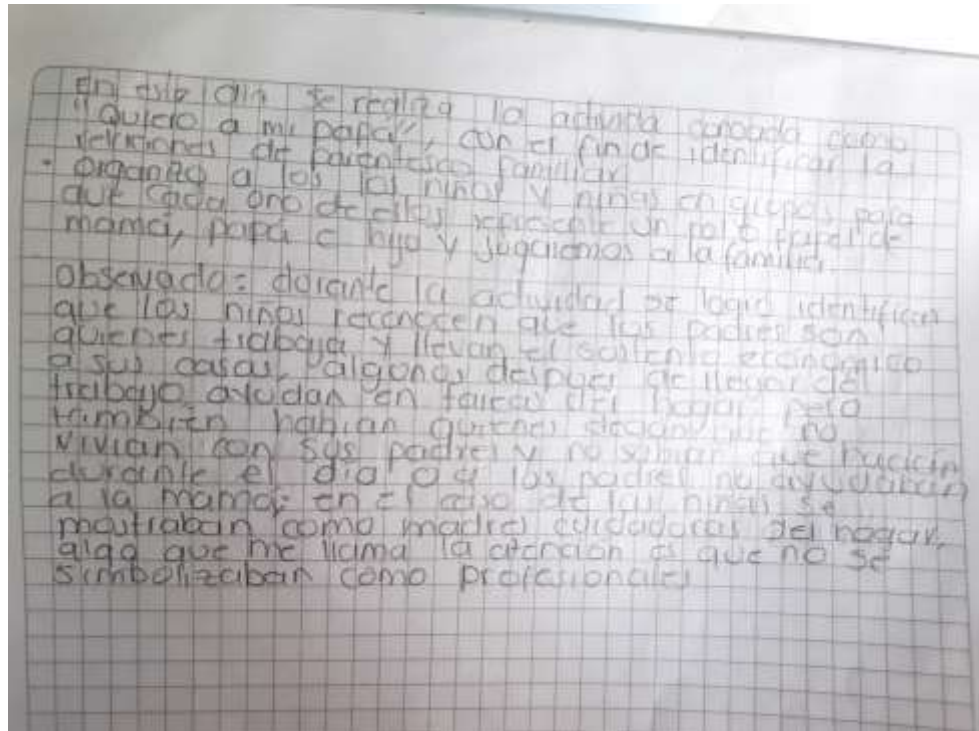 En este dia se realiza la activida conocda como
"Quiero a mi papa", con el fin de identificar la
relaciones de parentesco familiar
- organizo a los los niños y niñas en grupos para
que cada uno de ellos represente un rol o papel de
mamá, papá e hijo y jugaremos a la familia.
observado: durante la actividad se logró identificar
que los niños reconocen que los padres son
quienes trabaja y llevan el sustento económico
a sus casas, algunos despues de llegar del
trabajo ayudan en tareas del hogar pero
también habian quienes que no
vivian con sus padres y no sabian que hacian
durante el dia o los padres no ayudaban
a la mamá; en el caso de las niñas se
mostraban como madres cuidadoras del hogar,
algo que me llama la atención es que no se
simbolizaban como profesionales